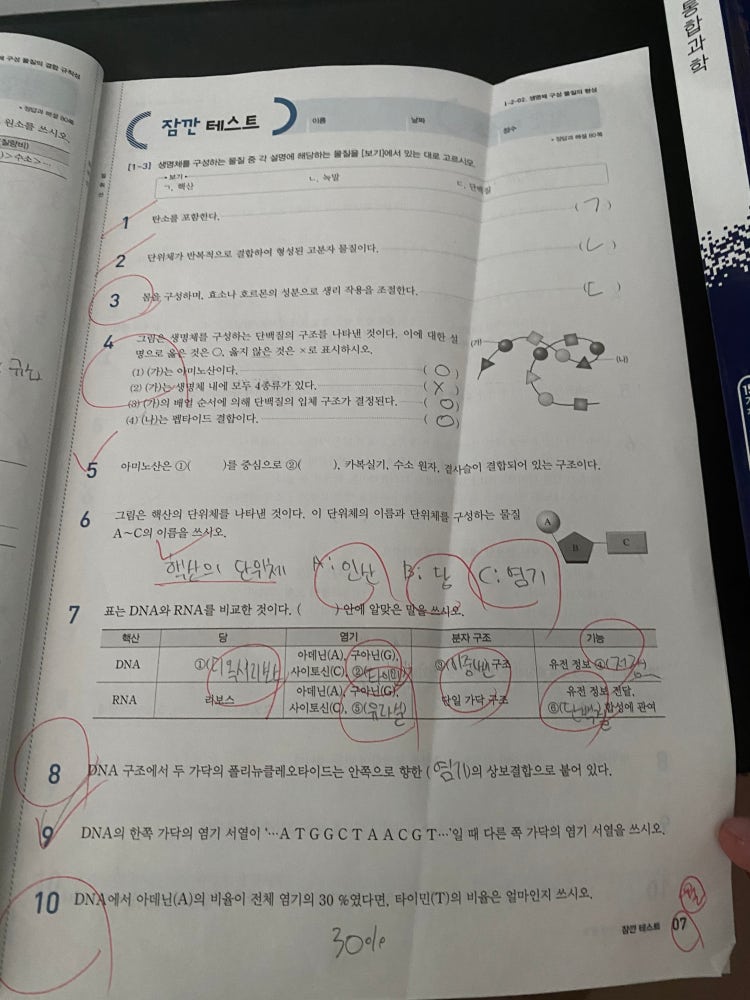 구성 물질의 결합 규칙성
• 정답과 해설 80쪽
원소를 쓰시오.
질량비)
>수소>…
통합과학
1-2-02. 생명체 구성 물질의 형성
잠깐 테스트
이름
날짜
점수
• 정답과 해설 80쪽
[1~3] 생명체를 구성하는 물질 중 각 설명에 해당하는 물질을 [보기]에서 있는 대로 고르시오.
• 보기 •
ㄱ. 핵산 ㄴ. 녹말 ㄷ. 단백질
1 탄소를 포함한다. (ㄱ)
2 단위체가 반복적으로 결합하여 형성된 고분자 물질이다. (ㄴ)
3 몸을 구성하며, 효소나 호르몬의 성분으로 생리 작용을 조절한다. (ㄷ)
4 그림은 생명체를 구성하는 단백질의 구조를 나타낸 것이다. 이에 대한 설
명으로 옳은 것은 ○, 옳지 않은 것은 ×로 표시하시오.
(1) (가)는 아미노산이다. (○)
(2) (가)는 생명체 내에 모두 4종류가 있다. (×)
(3) (가)의 배열 순서에 의해 단백질의 입체 구조가 결정된다. (○)
(4) (나)는 펩타이드 결합이다. (○)
(가)
(나)
5 아미노산은 ①( )를 중심으로 ②( ), 카복실기, 수소 원자, 곁사슬이 결합되어 있는 구조이다.
6 그림은 핵산의 단위체를 나타낸 것이다. 이 단위체의 이름과 단위체를 구성하는 물질
A~C의 이름을 쓰시오.
A
B
C
핵산의 단위체 A: 인산 B: 당 C: 염기
7 표는 DNA와 RNA를 비교한 것이다. ( )안에 알맞은 말을 쓰시오.
핵산 당 염기 분자 구조 기능
DNA ①(디옥시리보스) 아데닌(A), 구아닌(G), 사이토신(C), ②(타이민) ③(이중나선) 구조 유전 정보 ④(저장)
RNA 리보스 아데닌(A), 구아닌(G), 사이토신(C), ⑤(유라실) 단일 가닥 구조 유전 정보 전달, ⑥(단백질)합성에 관여
8 DNA 구조에서 두 가닥의 폴리뉴클레오타이드는 안쪽으로 향한 (염기)의 상보결합으로 붙어 있다.
9 DNA의 한쪽 가닥의 염기 서열이 '…A T G G C T A A C G T…'일 때 다른 쪽 가닥의 염기 서열을 쓰시오.
10 DNA에서 아데닌(A)의 비율이 전체 염기의 30 %였다면, 타이민(T)의 비율은 얼마인지 쓰시오.
30%
잠깐 테스트 07